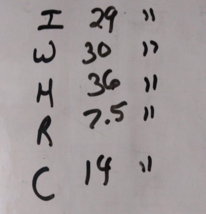 I 29 "
W 30 "
H 36 "
R 7.5 "
C 14 "